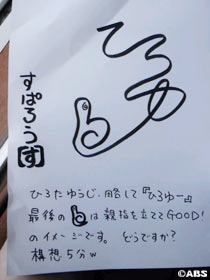 ひろゆ
すぱろう[す]
ひろたゆうじ、略して『ひろゆー』
最後のbは親指を立ててGOOD!
のイメージです。どうですか?
構想5分w
©ABS